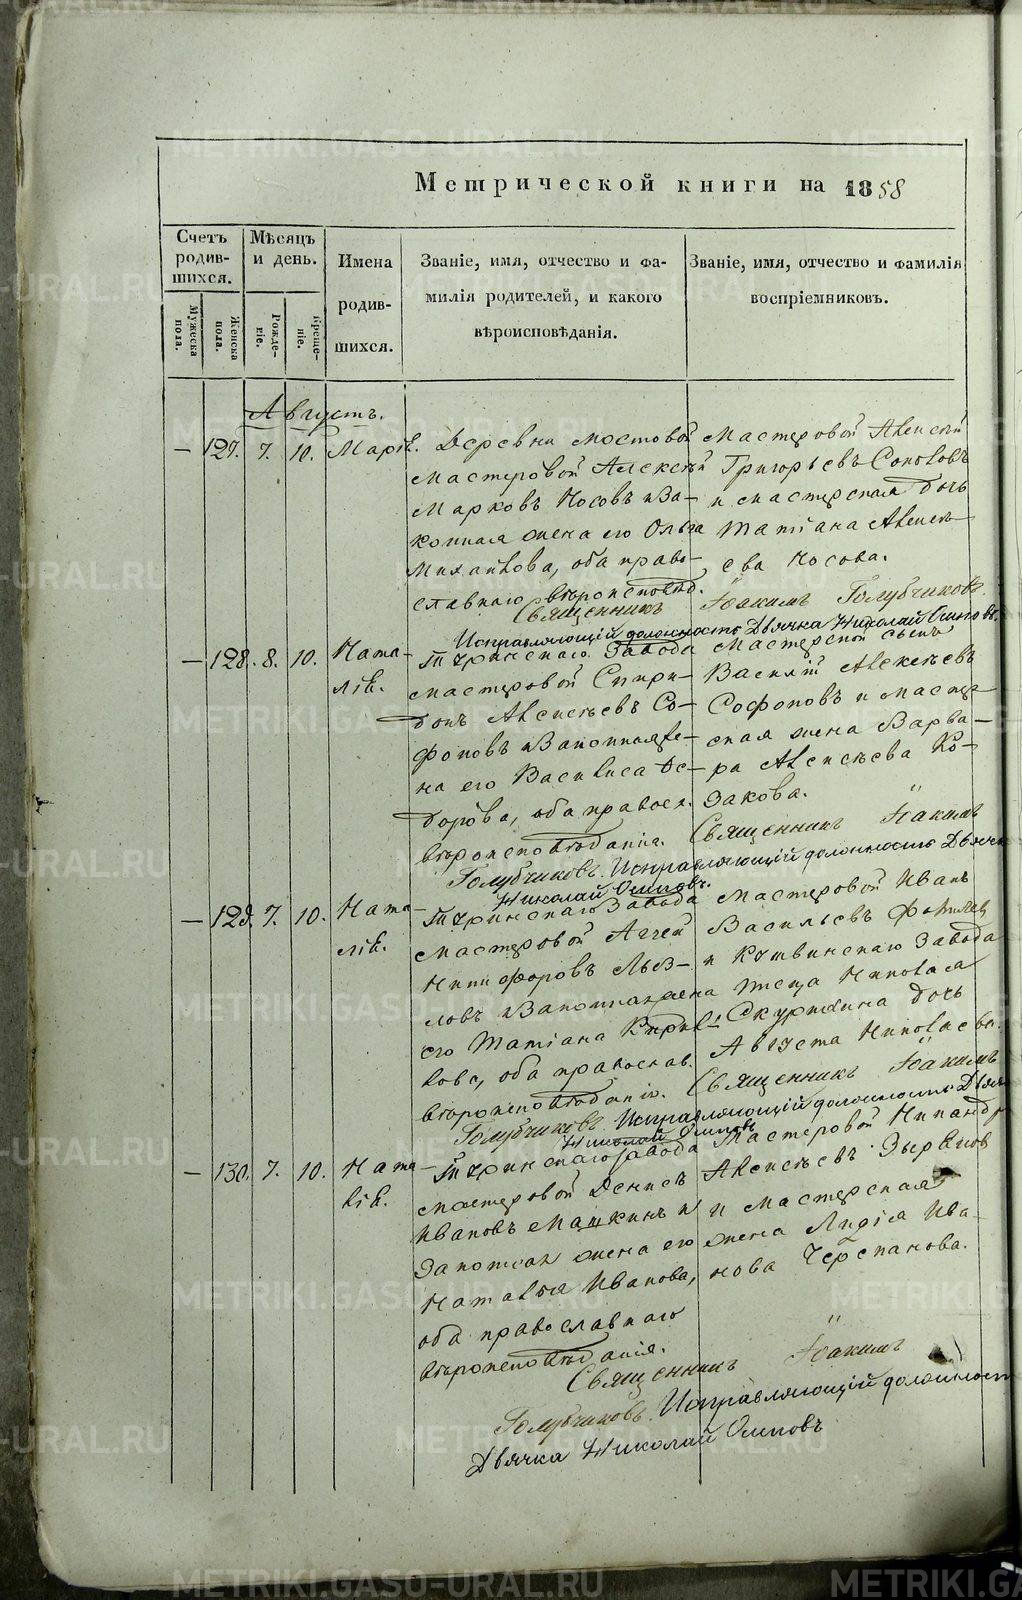 Метрической книги на 1858
Счетъ родившихся.
Мѣсяцъ и день.
Имена родившихся.
Званіе, имя, отчество и фамилія родителей, и какого вѣроисповѣданія.
Званіе, имя, отчество и фамилія воспріемниковъ.
Мужеска пола.
Женска пола.
Рожденіе.
Крещеніе.
Августъ.
— 127. 7. 10. Марія.
Деревни Мостовой
мастеровой Алексѣй
Марковъ Носовъ и за-
конная жена его Ольга
Михайлова, оба право-
славнаго вѣроисповѣд.
Мастеровой Алексѣй
Григорьевъ Соколовъ
и мастерская дочь
Татіана Алексѣ-
ева Носова.
Священникъ Іоакимъ Голубчиковъ.
Исправляющій должность Дьячка Николай Осиповъ.
— 128. 8. 10. Ната-
лія.
Туринскаго завода
мастеровой Спири-
донъ Алексѣевъ Со-
фоновъ и законная же-
на его Василиса Ѳе-
дорова, оба правосл.
вѣроисповѣданія.
Мастерской сынъ
Василій Алексѣевъ
Софоновъ и мастер-
ская жена Варва-
ра Алексѣева Ко-
закова.
Священникъ Іоакимъ
Голубчиковъ. Исправляющій должность Дьячка
Николай Осиповъ.
— 129. 7. 10. Ната-
лія.
Туринскаго завода
мастеровой Аггей
Никифоровъ
ловъ и законная жена
его Татіана Кирил-
лова, оба православ.
вѣроисповѣданія.
Мастеровой Иванъ
Васильевъ
и Кушвинскаго завода
Николая
дочь
Августа Николаева.
Священникъ Іоакимъ
Голубчиковъ. Исправляющій должность Дьяч
Николай Осиповъ
— 130. 7. 10. Ната-
лія.
Туринскаго завода
мастеровой Денисъ
Ивановъ Машкинъ и
законная жена его
Наталья Иванова,
оба православнаго
вѣроисповѣданія.
Мастеровой Никандр
Алексѣевъ Зыряновъ
и мастерская
жена Лидія Ива-
нова Черепанова.
Священникъ Іоакимъ
Голубчиковъ. Исправляющій должность
Дьячка Николай Осиповъ
METRIKI.GASO-URAL.RU